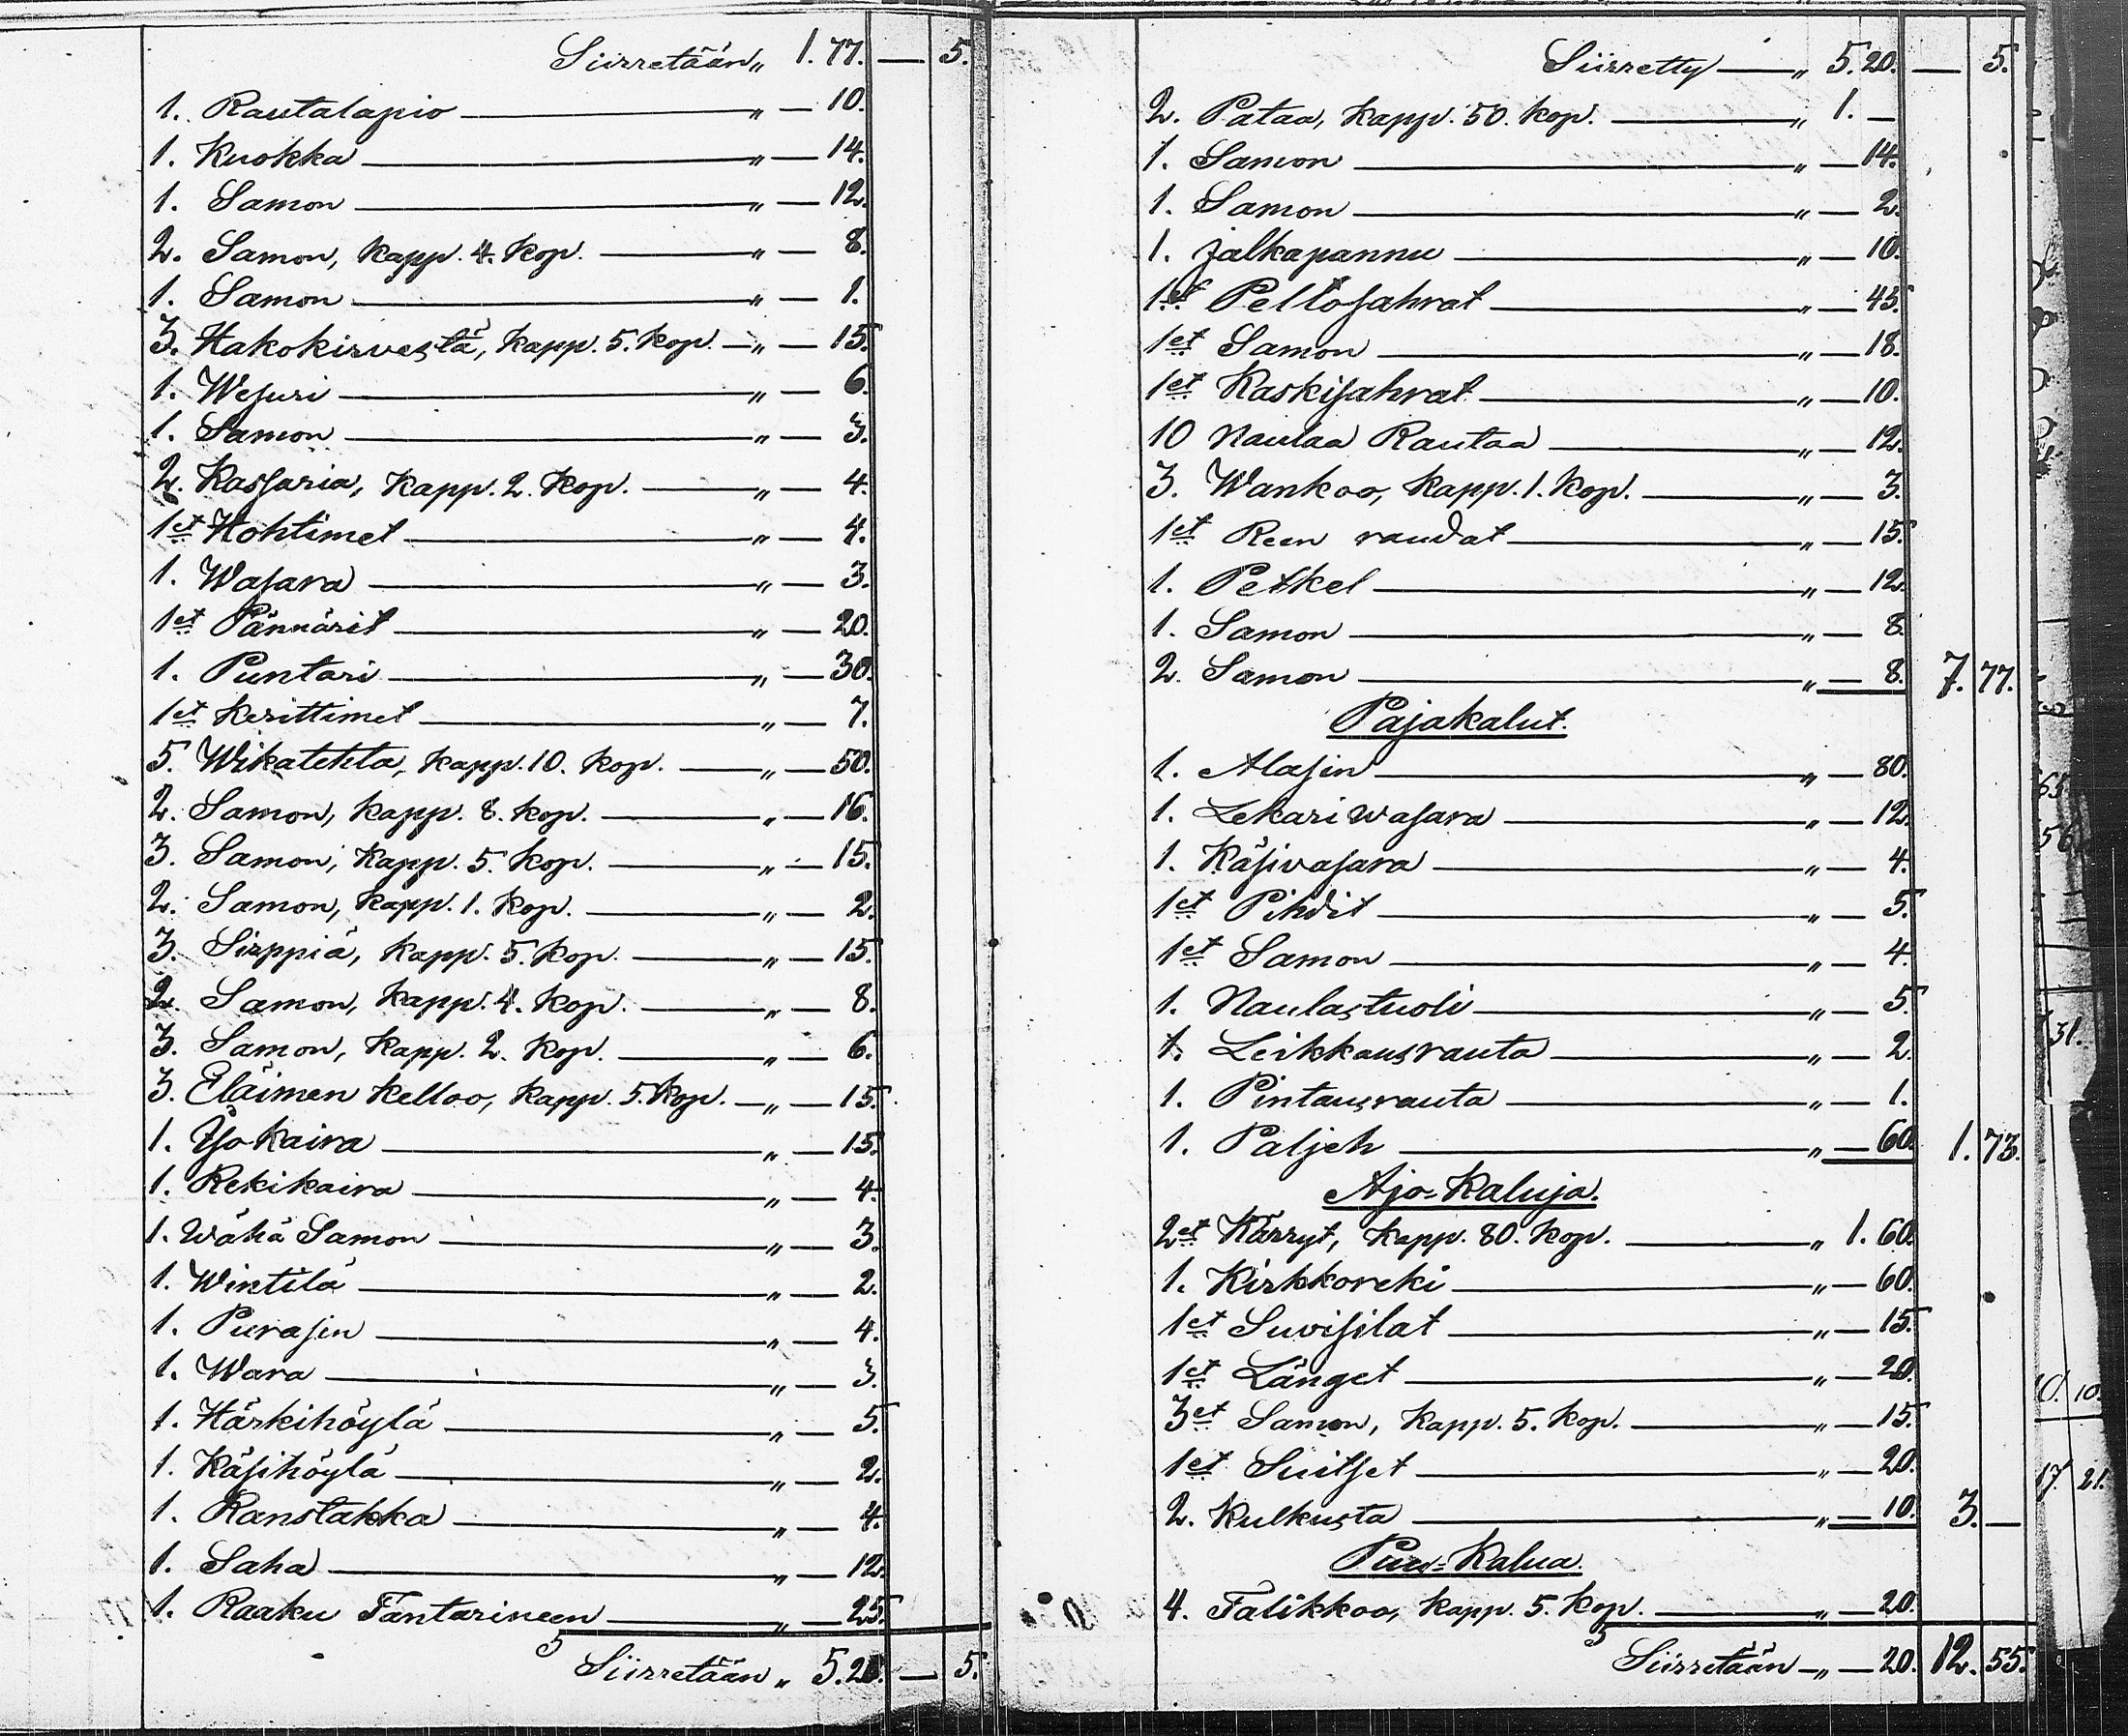 Siirretään „ 1. 77. — 5.
1. Rautalapio — „ — 10.
1. Kuokka — „ — 14.
1. Samon — „ — 12.
2. Samon, kapp. 4. kop. — „ — 8.
1. Samon — „ — 1.
3. Hakokirvestä, kapp. 5. kop. — „ — 15.
1. Wesuri — „ — 6.
1. Samon — „ — 3.
2. Kassaria, kapp. 2. kop. — „ — 4.
1et Hohtimet — „ — 4.
1. Wasara — „ — 3.
1et Pännärit — „ — 20.
1. Puntari — „ — 30.
1et kerittimet — „ — 7.
5. Wikatehta, kapp. 10. kop. — „ — 50.
2. Samon, kapp. 8. kop. — „ — 16.
3. Samon, kapp. 5. kop. — „ — 15.
2. Samon, kapp. 1. kop. — „ — 2.
3. Sirppiä, kapp. 5. kop. — „ — 15.
2. Samon, kapp. 4. kop. — „ — 8.
3. Samon, kapp. 2. kop. — „ — 6.
3. Eläimen kelloo, kapp. 5. kop. — „ — 15.
1. Yso kaira — „ — 15.
1. Rekikaira — „ — 4.
1. Wähä Samon — „ — 3.
1. Wintilä — „ — 2.
1. Purasin — „ — 4.
1. Wara — „ — 3.
1. Härkihöylä — „ — 5.
1. Käsihöylä — „ — 2.
1. Ranstakka — „ — 4.
1. Saha — „ — 12.
1. Raaku Tantarineen — „ — 25.
Siirretään „ 5. 20. — 5.
Siirretty — „ 5. 20. — 5.
2. Pataa, kapp. 50. kop. — „ 1. —
1. Samon — „ — 14.
1. Samon — „ — 2.
1. jalkapannu — „ — 10.
1et Peltosahrat — „ — 45.
1et Samon — „ — 18.
1et Kaskisahrat — „ — 10.
10 Naulaa Rautaa — „ — 12.
3. Wankoo, kapp. 1. kop. — „ — 3.
1et Reen raudat — „ — 15.
1. Petkel — „ — 12.
1. Samon — „ — 8.
2. Samon — „ — 8. 7. 77.
Pajakalut.
1. Alasin — „ — 80.
1. Lekariwasara — „ — 12.
1. Käsivasara — „ — 4.
1et Pihdit — „ — 5.
1et Samon — „ — 4.
1. Naulastuoli — „ — 5.
1. Leikkausrauta — „ — 2.
1. Pintausrauta — „ — 1.
1. Paljeh — „ — 60. 1. 73.
Ajo-Kaluja.
2et Kärryt, kapp. 80. kop. — „ 1. 60.
1. Kirkkoreki — „ — 60.
1et Suvisilat — „ — 15.
1et Länget — „ — 20.
3et Samon, kapp. 5. kop. — „ — 15.
1et Suitset — „ — 20.
2. kulkusta — „ — 10. 3. —
Puu-Kalua.
4. Talikkoo, kapp. 5. kop. — „ — 20.
Siirretään — „ — 20. 12. 55.